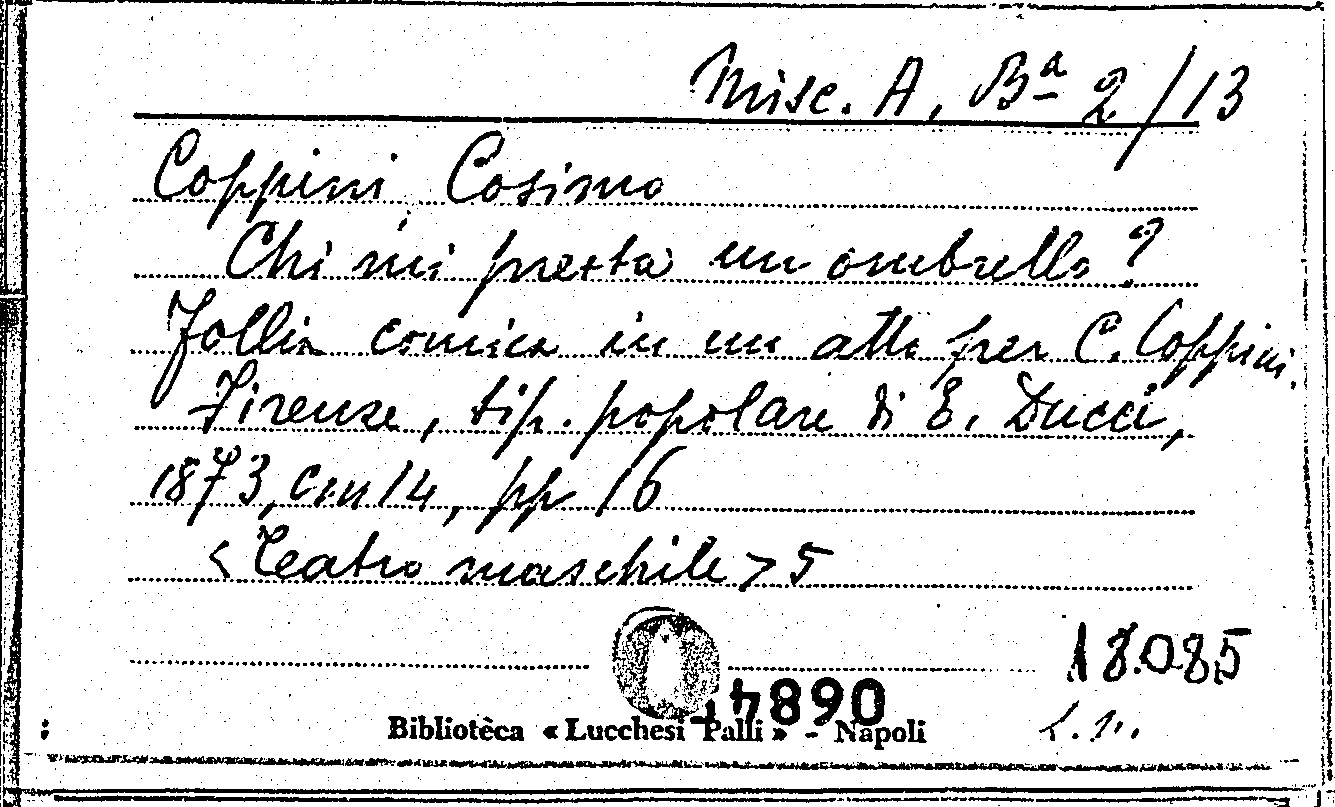 Misc. A, Bª 2/13
Coppini Cosimo
Chi mi presta un ombrello?
Follia comica in un atto per C. Coppini.
Firenze, tip. popolare di E. Ducci,
1873, cm 14, pp 16
<Teatro maschile> 5
18.085
14890
Bibliotèca « Lucchesi Palli » - Napoli